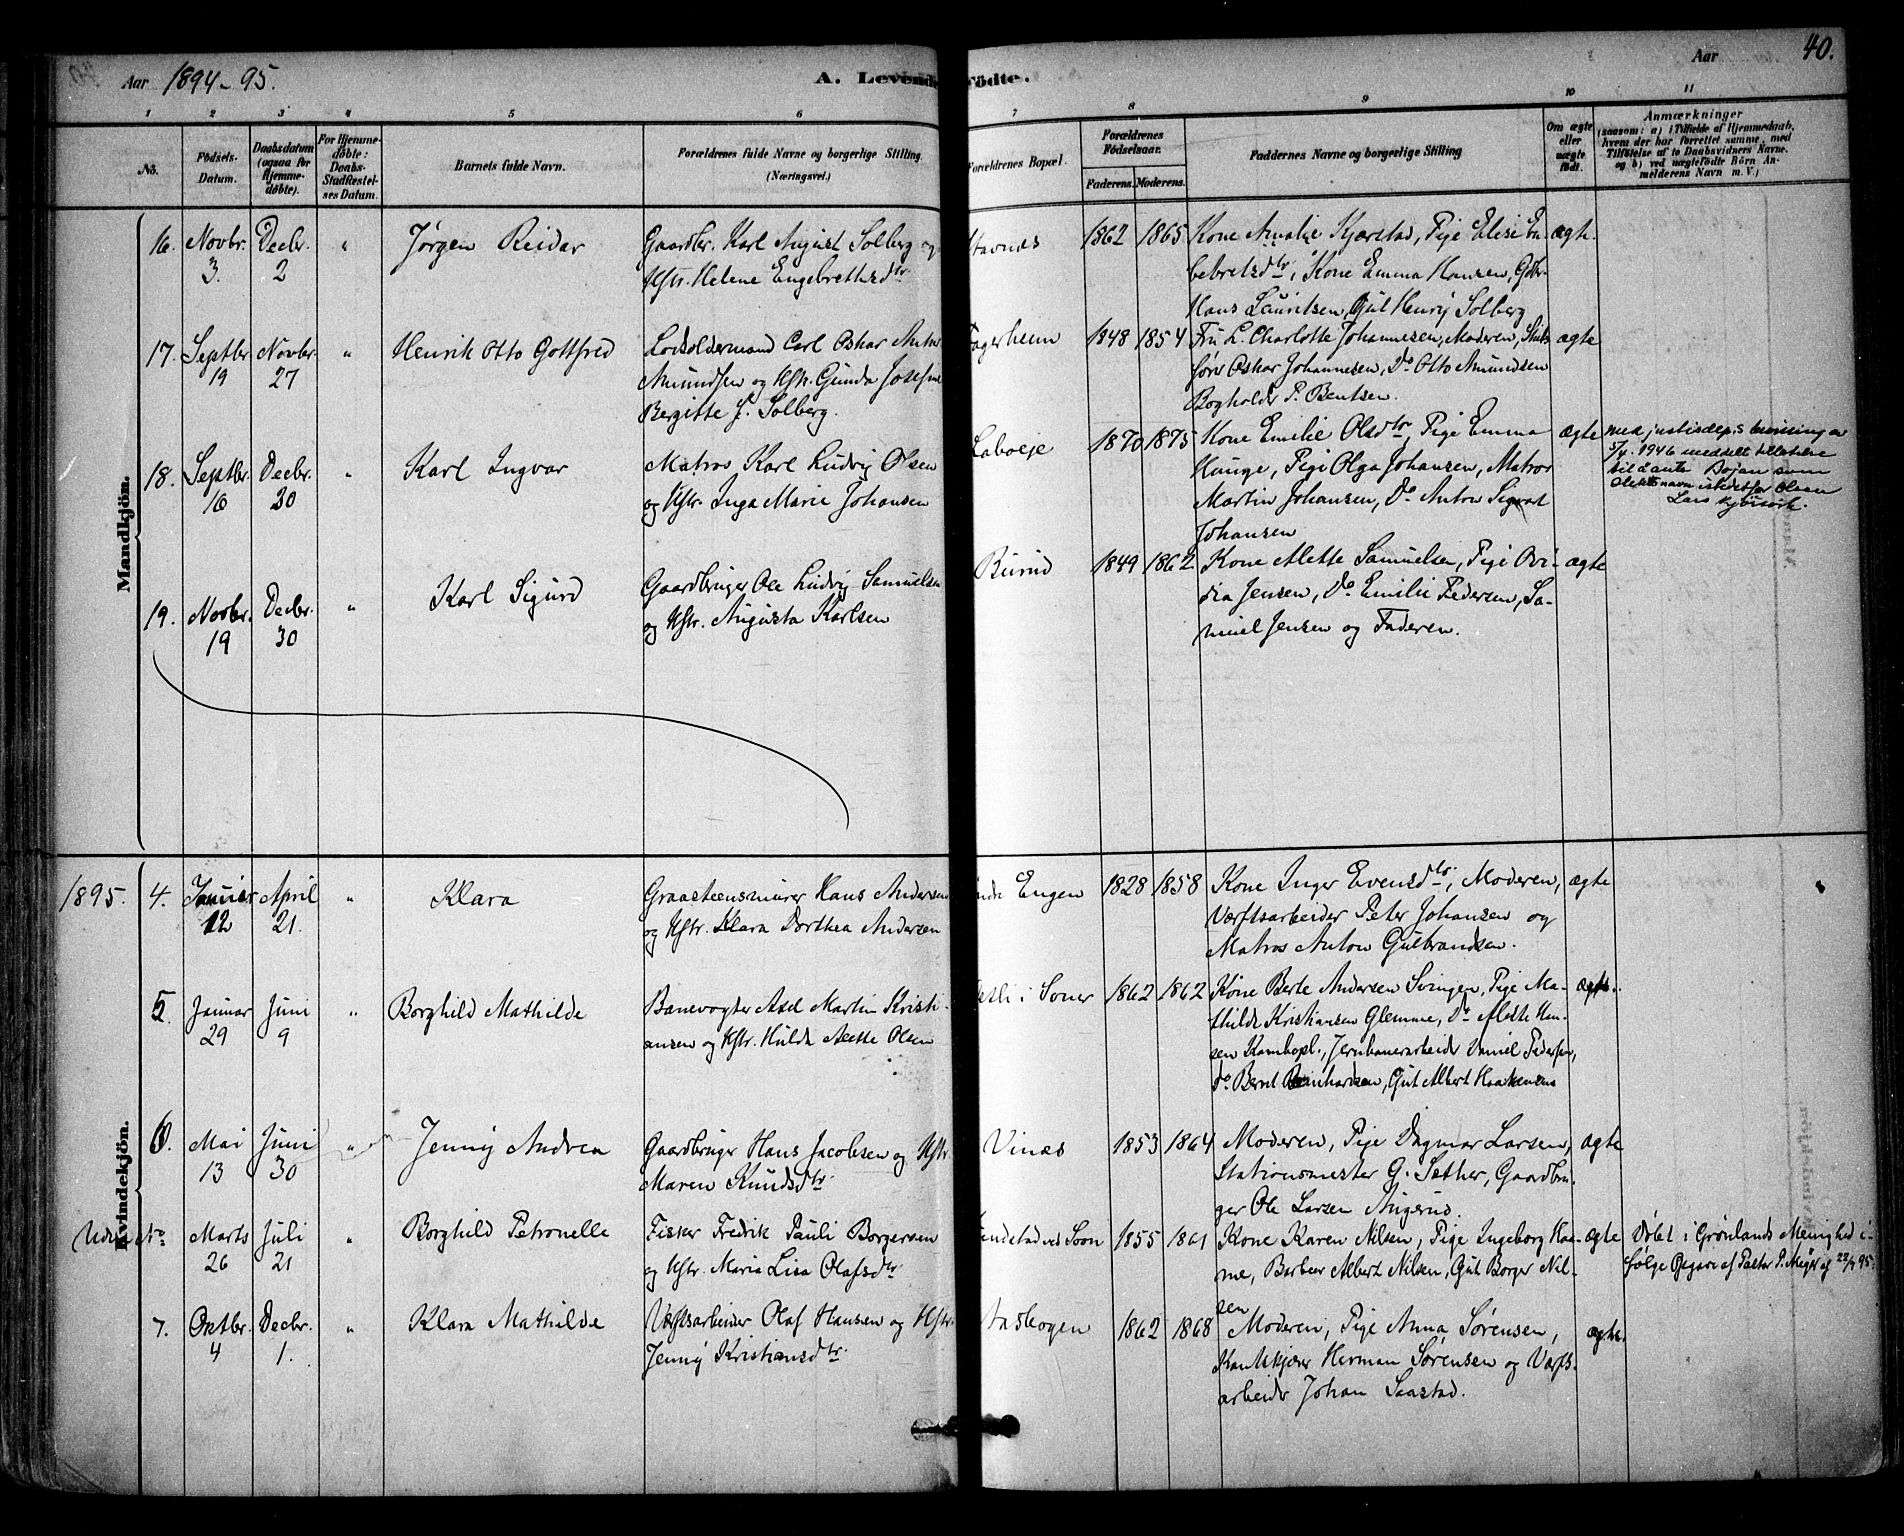 Aar 1894-95.
A. Levende Fødte.
Aar
40.
1 2 3 4 5 6 7 8 9 10 11
No.
Fødsels-Datum.
Daabsdatum (ogsaa for Hjemme-døbte).
For Hjemme-døbte: Daabs-Stadfæstel-ses Datum.
Barnets fulde Navn.
Forældrenes fulde Navne og borgerlige Stilling. (Næringsvei.)
Forældrenes Bopæl.
Forældrenes Fødselsaar.
Faderens. Moderens.
Faddernes Navne og borgerlige Stilling
Om ægte eller uægte født.
Anmærkninger
(saasom: a) i Tilfælde af Hjemmedaab,
hvem der har forrettet samme, med
Tilføielse af to Daabsvidners Navne.
og b) ved uægtefødte Børn An-
melderens Navn m. V.)
Mandkjøn.
16. Novbr. 3. Decbr. 2 " Jørgen Reidar
Gaardbr. Karl August Solberg og
Hstr. Helene Engebrethsdtr
Stavnæs 1862 1865
Kone Amalie Kjærstad, Pige Elise En-
bebretsdtr, Kone Emma Hansen, Gdbr.
Hans Lauritsen, Gut Henry Solberg
ægte
17. Septbr 19 Novbr. 27 " Henrik Otto Gottfred
Lodsoldermand Carl Oskar Anton
Amundsen og Hstr. Gunda Josefine
Bergitte J. Solberg.
Fagerheim 1848 1854
Fru L. Charlotte Johannesen, Moderen, Skibs-
fører Oskar Johannesen, Do Otto Amundsen
Bogholder P. Bentsen.
ægte
18. Septbr. 16 Decbr. 30 " Karl Ingvar
Matros Karl Ludvig Olsen
og Hstr. Inga Marie Johansen
Laboeje 1870 1875
Kone Emilie Olsdtr, Pige Emma
Hauge, Pige Olga Johansen, Matros
Martin Johansen, Do Anton Sigvat
Johansen
ægte
Med justisdep.s bevilling av
5/4. 1946 meddelt tillatelse
til å anta Bojan som
slektsnavn istedetfor Olsen
Lars
19. Novbr. 19 Decbr. 30 " Karl Sigurd
Gaardbruger Ole Ludvig Samuelsen
og Hstr. Augusta Karlsen
Burud 1849 1862
Kone Alette Samuelsen, Pige Ovi-
dia Jensen, Do Emilie Pedersen, Sa-
muel Jensen og Faderen.
ægte
Kvindekjøn.
1895. 4. Januar 12 April 21. " Klara
Graasteensmurer Hans Andersen
og Hstr. Klara Dorthea Andersen
Engen 1828 1858
Kone Inger Evensdtr, Moderen,
Værftsarbeider Peter Johansen og
Matros Anton Gulbrandsen.
ægte
5. Januar 29 Juni 9 " Borghild Mathilde
Banevogter Axel Martin Kristi-
ansen og Hstr. Hulda Alette Olsen
i Soner 1862 1862
Kone Berte Andersen Svingen, Pige Ma-
thilde Kristiansen Glemme, Do Alette Han-
sen Kambopl., Jernbanearbeider Daniel Pedersen,
do. Bernt Bernhardsen, Gut Albert Haakensen
ægte.
6. Mai 13 Juni 30 " Jenny Andrea
Gaardbruger Hans Jacobsen og Hstr.
Maren Knudsdtr.
Vinæs 1853 1864
Moderen, Pige Dagmar Larsen,
Stationsmester G. Sæther, Gaardbru-
ger Ole Larsen Angerud.
ægte
Uden No Marts 26 Juli 21 " Borghild Petronelle
Fisker Fredrik Pauli Borgersen
og Hstr. Maria Lisa Olafsdtr.
ved Soon 1855 1861
Kone Karen Nilsen, Pige Ingeborg Haa-
me, Barbeer Albert Nilsen, Gut Borger Nil-
sen
ægte
Døbt i Grønlands Menighed i-
følge Opgave af Pastor P. af 22/7 95.
7. Oktbr. 4 Decbr. 1. " Klara Mathilde
Værftsarbeider Olaf Hansen og Hstr.
Jenny Kristiansdtr.
Aasbogen 1862 1868
Moderen, Pige Anna Sørensen,
Herman Sørensen og Værfts-
arbeider Johan Saastad.
ægte.